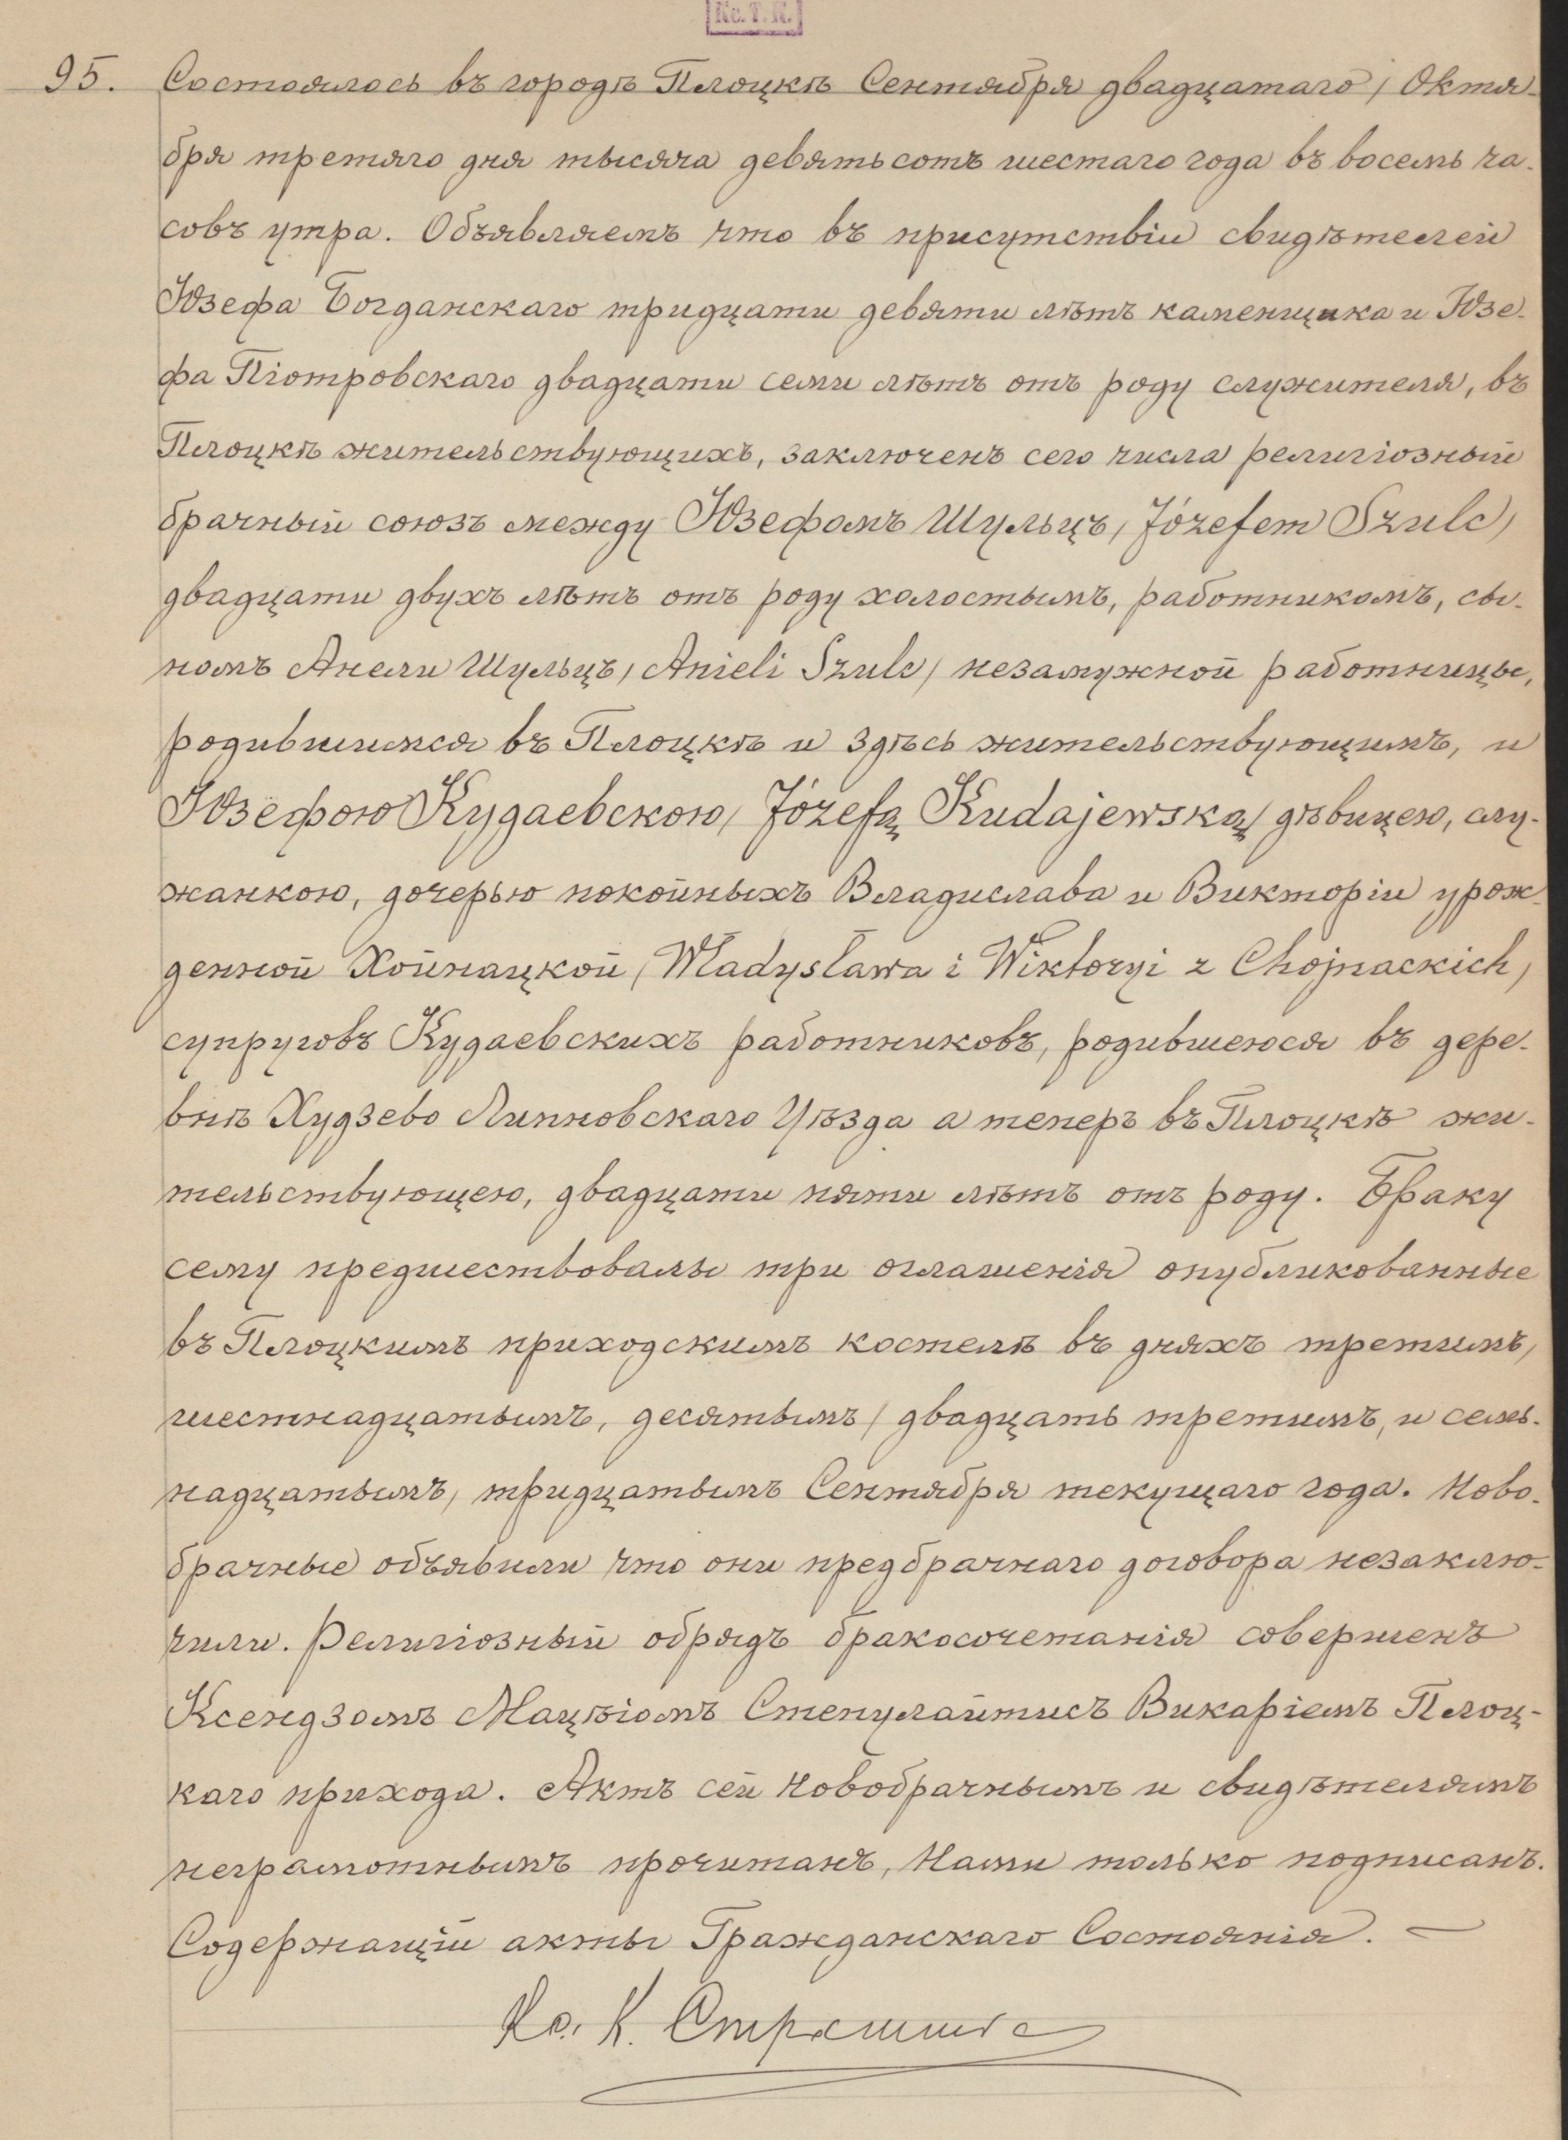 Кс. Т. К.
95. Состоялось въ городѣ Плоцкѣ Сентября двадцатаго / Октя-
бря третяго дня тысяча девятьсотъ шестаго года въ восемь ча-
совъ утра. Объявляемъ что въ присутствіи свидѣтелей
Юзефа Богданскаго тридцати девяти лѣтъ каменщика и Юзе-
фа Піотровскаго двадцати семи лѣтъ отъ роду служителя, въ
Плоцкѣ жительствующихъ, заключенъ сего числа религіозный
брачный союзъ между Юзефомъ Шульцъ, /Józefem Szulc/
двадцати двухъ лѣтъ отъ роду холостымъ, работникомъ, сы-
номъ Анели Шульцъ, /Anieli Szulc/ незамужной работницы,
родившимся въ Плоцкѣ и здѣсь жительствующимъ, и
Юзефою Кудаевскою /Józefą Kudajewską/ дѣвицею, слу-
жанкою, дочерью покойныхъ Владислава и Викторіи урож-
денной Хойнацкой /Władysława i Wiktoryi z Chojnackich/
супруговъ Кудаевскихъ работниковъ, родившеюся въ дере-
внѣ Худзево Липновскаго Уѣзда а теперъ въ Плоцкѣ жи-
тельствующею, двадцати пяти лѣтъ отъ роду. Браку
сему предшествовалы три оглашенія опубликованные
въ Плоцкимъ приходскимъ костелѣ въ дняхъ третимъ /
шестнадцатымъ, десятымъ / двадцать третимъ, и семь-
надцатымъ / тридцатымъ Сентября текущаго года. Ново-
брачные объявили что они предбрачнаго договора незаклю-
чили. Религіозный обрядъ бракосочетанія совершенъ
Ксендзомъ Мацѣіомъ Степулайтисъ Викаріемъ Плоц-
каго прихода. Актъ сей Новобрачнымъ и свидѣтелямъ
неграмотнымъ прочитанъ, Нами только подписанъ.
Содержащій акты Гражданскаго Состоянія. —
Кс. К.